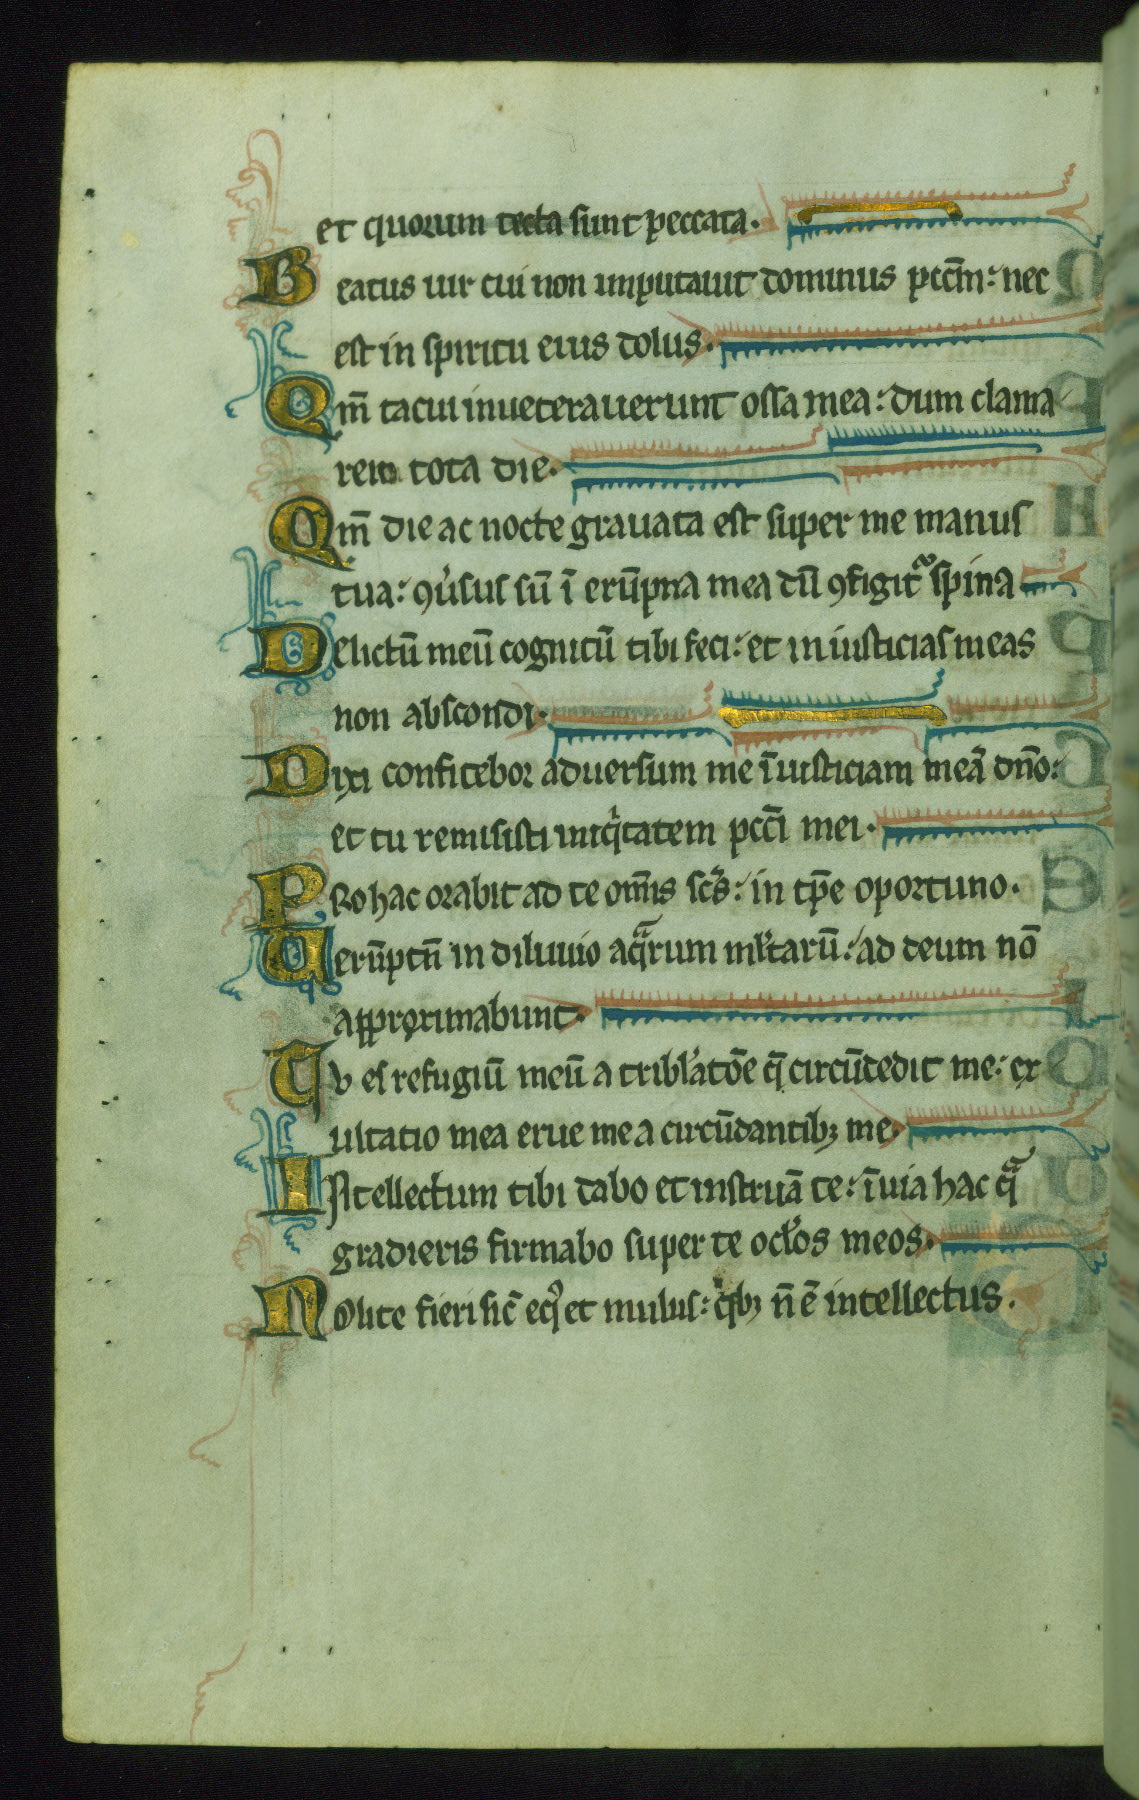 et quorum tecta sunt peccata.
Beatus uir cui non imputauit dominus pcc̄m: nec
est in spiritu eius dolus.
Qm̄ tacui inueterauerunt ossa mea: dum clama
rem tota die.
Qm̄ die ac nocte grauata est super me manus
tua: ꝯuͥsus sū ī erūpna mea dū ꝯfigitͣ spina
Delictū meū cognitū tibi feci: et iniusticias meas
non abscondi.
Dixi confitebor aduersum me īiusticiam meā dn̄o:
et tu remisisti iniqͥtatem pcc̄i mei.
Pro hac orabit ad te om̄is sc̄s: in tp̄e oportuno.
Uerūptn̄ in diluuio aqͣrum ml̓tarū: ad deum nō
approximabunt.
Tu es refugiū meū a tribl̓atōe q̄ circūdedit me: ex
ultatio mea erue me a circūdantibꝫ me.
Intellectum tibi dabo et instruā te: ī uia hac qͣ
gradieris firmabo super te ocl̓os meos.
Nolite fieri sic̄ eqꝰ et mulus: qͥbꝫ n̄ ē intellectus.